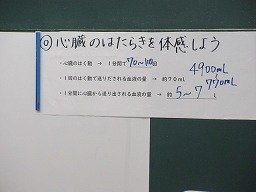 ◎心臓のはたらきを体感しよう
・心臓のはく動 → 1分間で70~110回
4900mL
・1回のはく動で送りだされる血液の量 → 約70mL
7700mL
・1分間に心臓から送り出される血液の量 → 約5~7L